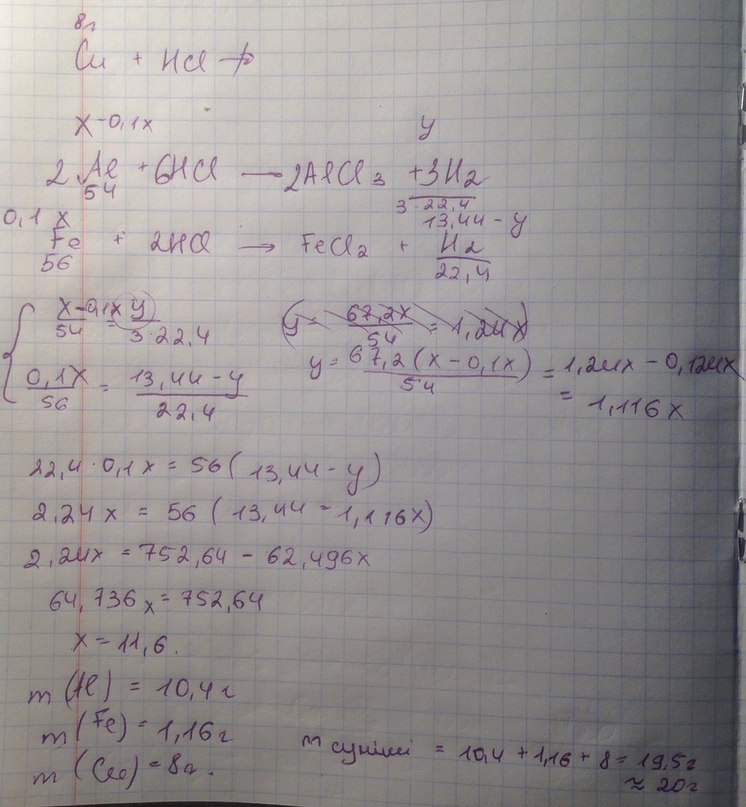 8г
Cu + HCl ↛
x-0,1x y
2Al + 6HCl → 2AlCl3 + 3H2
54 3·22,4
0,1x 13,44-y
Fe + 2HCl → FeCl2 + H2
56 22,4
x-0,1x/54 = y/3·22,4 (y = 67,2x/54 = 1,24x)
y = 67,2(x-0,1x)/54 = 1,24x - 0,124x
= 1,116x
0,1x/56 = 13,44-y/22,4
22,4·0,1x = 56(13,44-y)
2,24x = 56(13,44-1,116x)
2,24x = 752,64 - 62,496x
64,736x = 752,64
x = 11,6.
m(Al) = 10,4г
m(Fe) = 1,16г
m(Cu) = 8г.
m суміші = 10,4 + 1,16 + 8 = 19,5г
≈ 20г